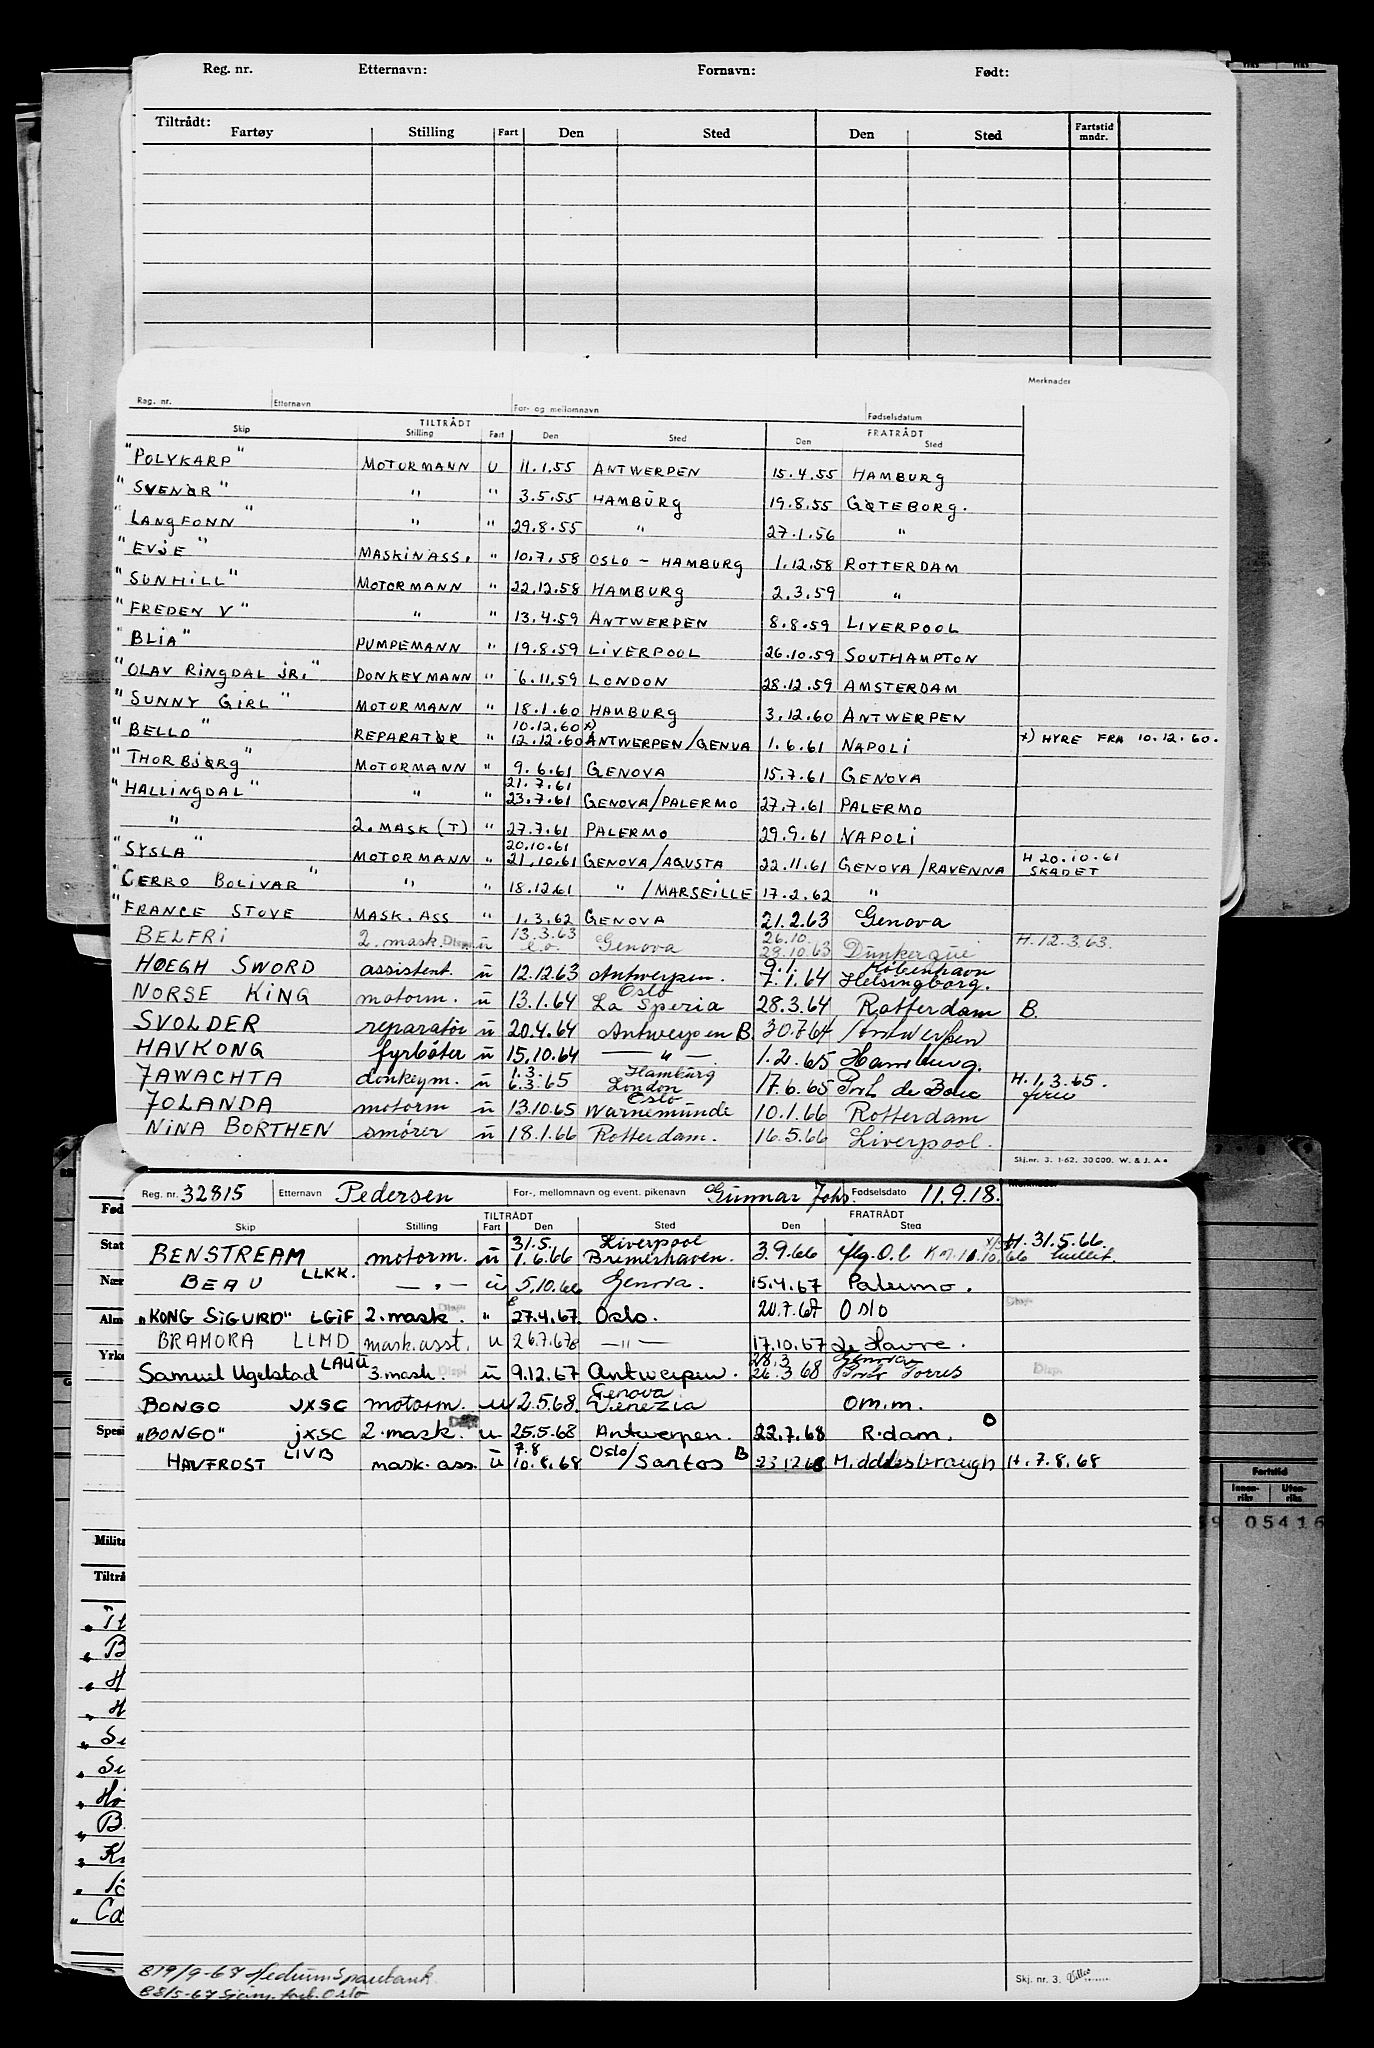 Reg. nr. Etternavn: Fornavn: Født:
Tiltrådt:
Fartøy Stilling Fart Den Sted Den Sted Fartstid mndr.
Merknader
Reg. nr. Etternavn For- og mellomnavn Fødselsdatum
TILTRÅDT FRATRÅDT
Skip Stilling Fart Den Sted Den Sted
"POLYKARP" MOTORMANN U 11.1.55 ANTWERPEN 15.4.55 HAMBURG
"SVENØR" " " 3.5.55 HAMBURG 19.8.55 GØTEBORG.
"LANGFONN" " " 29.8.55 " 27.1.56 "
"EVJE" MASKINASS. " 10.7.58 OSLO - HAMBURG 1.12.58 ROTTERDAM
"SUNHILL" MOTORMANN " 22.12.58 HAMBURG 2.3.59 "
"FREDEN V" " " 13.4.59 ANTWERPEN 8.8.59 LIVERPOOL
"BLIA" PUMPEMANN " 19.8.59 LIVERPOOL 26.10.59 SOUTHAMPTON
"OLAV RINGDAL JR." DONKEYMANN " 6.11.59 LONDON 28.12.59 AMSTERDAM
"SUNNY GIRL" MOTORMANN " 18.1.60 HAMBURG 3.12.60 ANTWERPEN
10.12.60 x)
"BELLO" REPARATØR " 12.12.60 ANTWERPEN/GENUA 1.6.61 NAPOLI x) HYRE FRA 10.12.60.
"THORBJØRG" MOTORMANN " 9.6.61 GENOVA 15.7.61 GENOVA
21.7.61
"HALLINGDAL" " " 23.7.61 GENOVA/PALERMO 27.7.61 PALERMO
" 2. MASK (T) " 27.7.61 PALERMO 29.9.61 NAPOLI
20.10.61
"SYSLA" MOTORMANN " 21.10.61 GENOVA/AGUSTA 22.11.61 GENOVA/RAVENNA H 20.10.61 SKADET
"CERRO BOLIVAR" " " 18.12.61 " /MARSEILLE 17.2.62 "
"FRANCE STOVE MASK. ASS " 1.3.62 GENOVA 21.2.63 Genova
13.3.63 26.10.
BELFRI 2. mask. Disp. u Genova 29.10.63 Dunkerque H. 12.3.63.
9.1. København
HØEGH SWORD assistent. u 12.12.63 Antwerpen. 7.1.64 Helsingborg.
Oslo
NORSE KING motorm. u 13.1.64 La Speria 28.3.64 Rotterdam B.
SVOLDER reparatør u 20.4.64 Antwerpen B. 30.7.64 Antwerpen
HAVKONG fyrbøter u 15.10.64 — " — 1.2.65 Hamburg.
1.3. Hamburg
JAWACHTA donkeym. u 6.3.65 London 17.6.65 Port de Bouc H. 1.3.65.
Oslo
JOLANDA motorm u 13.10.65 Warnemünde 10.1.66 Rotterdam
NINA BORTHEN smører u 18.1.66 Rotterdam. 16.5.66 Liverpool.
Skj.nr. 3. 1-62. 30000. W. & J. A.
Merknader
Reg. nr. 32815 Etternavn Pedersen For-, mellomnavn og event. pikenavn Gunnar Johs. Fødselsdato 11.9.18.
TILTRÅDT FRATRÅDT
Skip Stilling Fart Den Sted Den Sted
31.5. Liverpool
BENSTREAM motorm. u 1.6.66 Bremerhaven. 3.9.66 H. 31.5.66.
BEAU LLKK. — " — u 5.10.66 Genova. 15.4.67 Palermo.
"KONG SIGURD" LGIF 2. mask. Disp. " 27.4.67 Oslo. 20.7.67 Oslo Disp.
BRAMORA LLMD mask.asst. u 26.7.67 B — " — 17.10.67 Le Havre.
28.3 Genova
Samuel Ugelstad LAUU 3. mask. Disp. u 9.12.67 Antwerpen. 26.3 68 Porto Torres Disp.
Genova
BONGO JXSC motorm. u 2.5.68. Venezia om.m.
"BONGO" JXSC 2. mask. Disp. u 25.5.68 Antwerpen. 22.7.68 R.dam. O
7.8
HAVFROST LIVB mask. ass. u 10.8.68 Oslo/Santos B 23.12 68 Middlesbraugh H. 7.8.68
Fød
Stat
Nær
Alm
Yrke
Spesi
Milita
Tiltrå
Fartstid
Innen-riks Uten-riks
05416
B19/9-67 Hedrum Sparebank
B8/5-67 Sjøm. forb. Oslo
Skj. nr. 3.